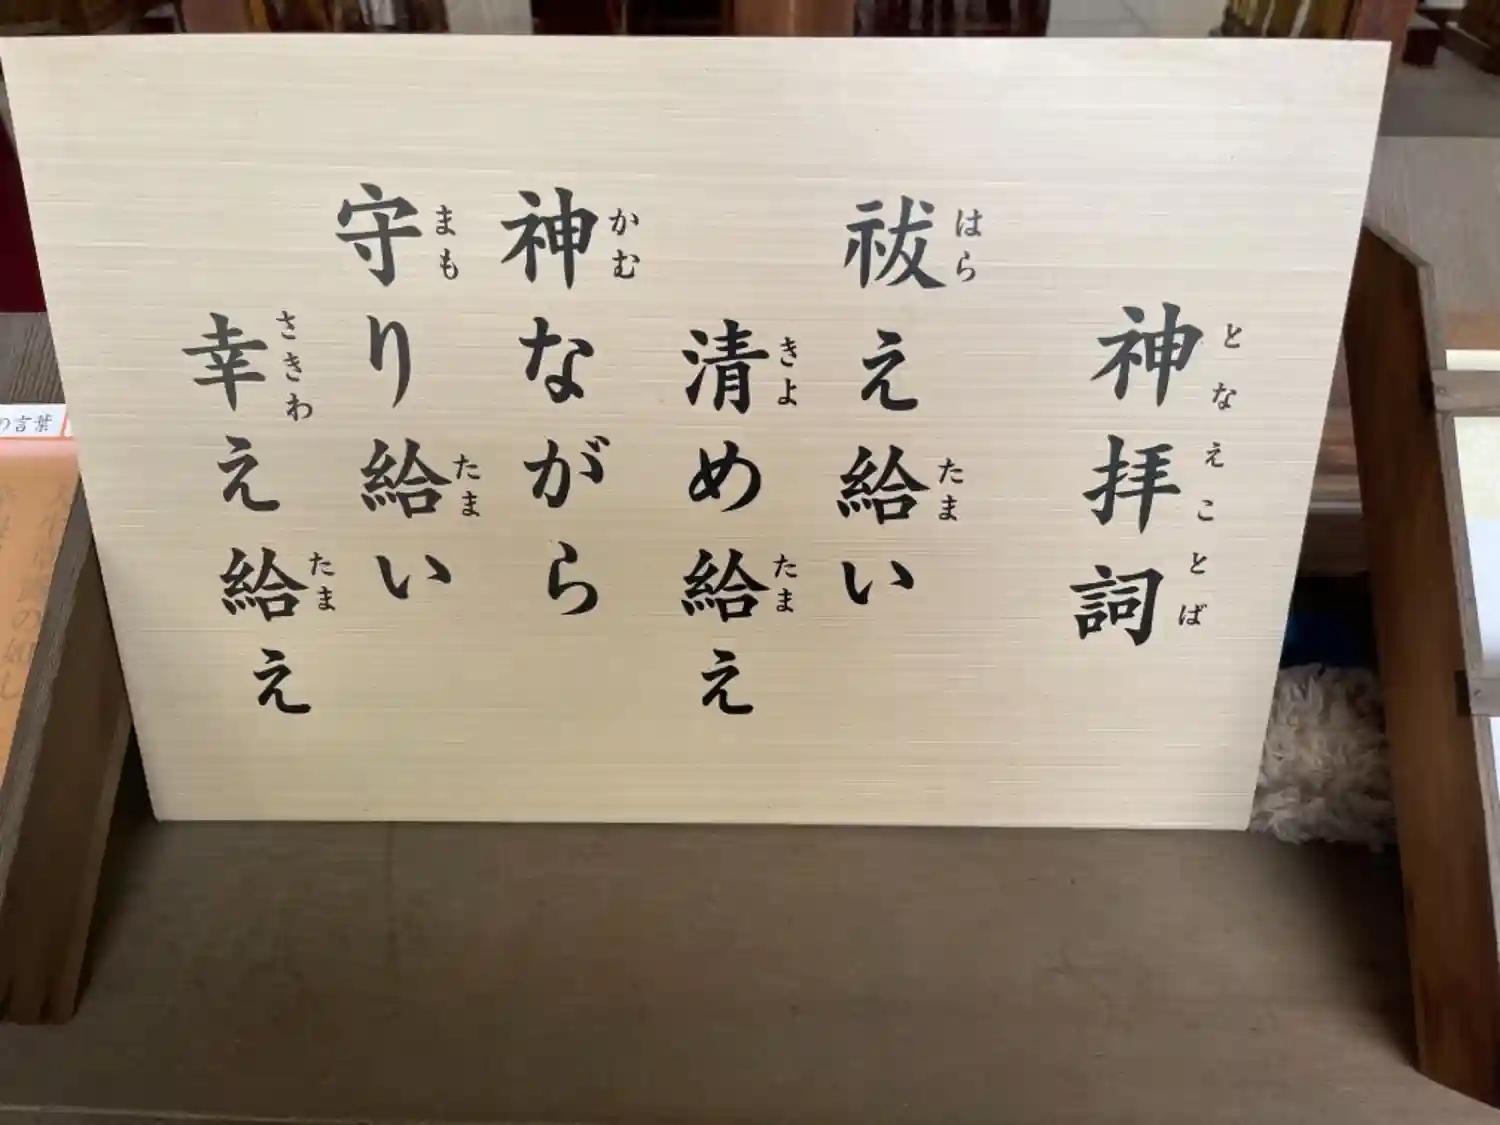 神拝詞
となえことば
祓え給い
はら
たま
清め給え
きよ
たま
神ながら
かむ
守り給い
まも
たま
幸え給え
さきわ
たま
の言葉